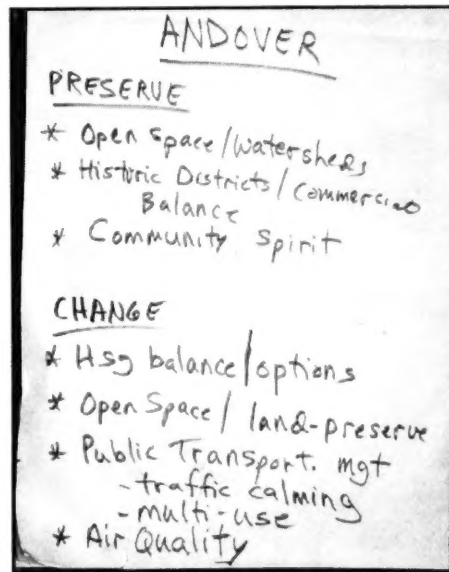 ANDOVER
PRESERVE
* Open Space/Watersheds
* Historic Districts/Commercial
Balance
* Community Spirit
CHANGE
* Hsg balance/options
* Open Space/land-preserve
* Public Transport. mgt
- traffic calming
- multi-use
* Air Quality